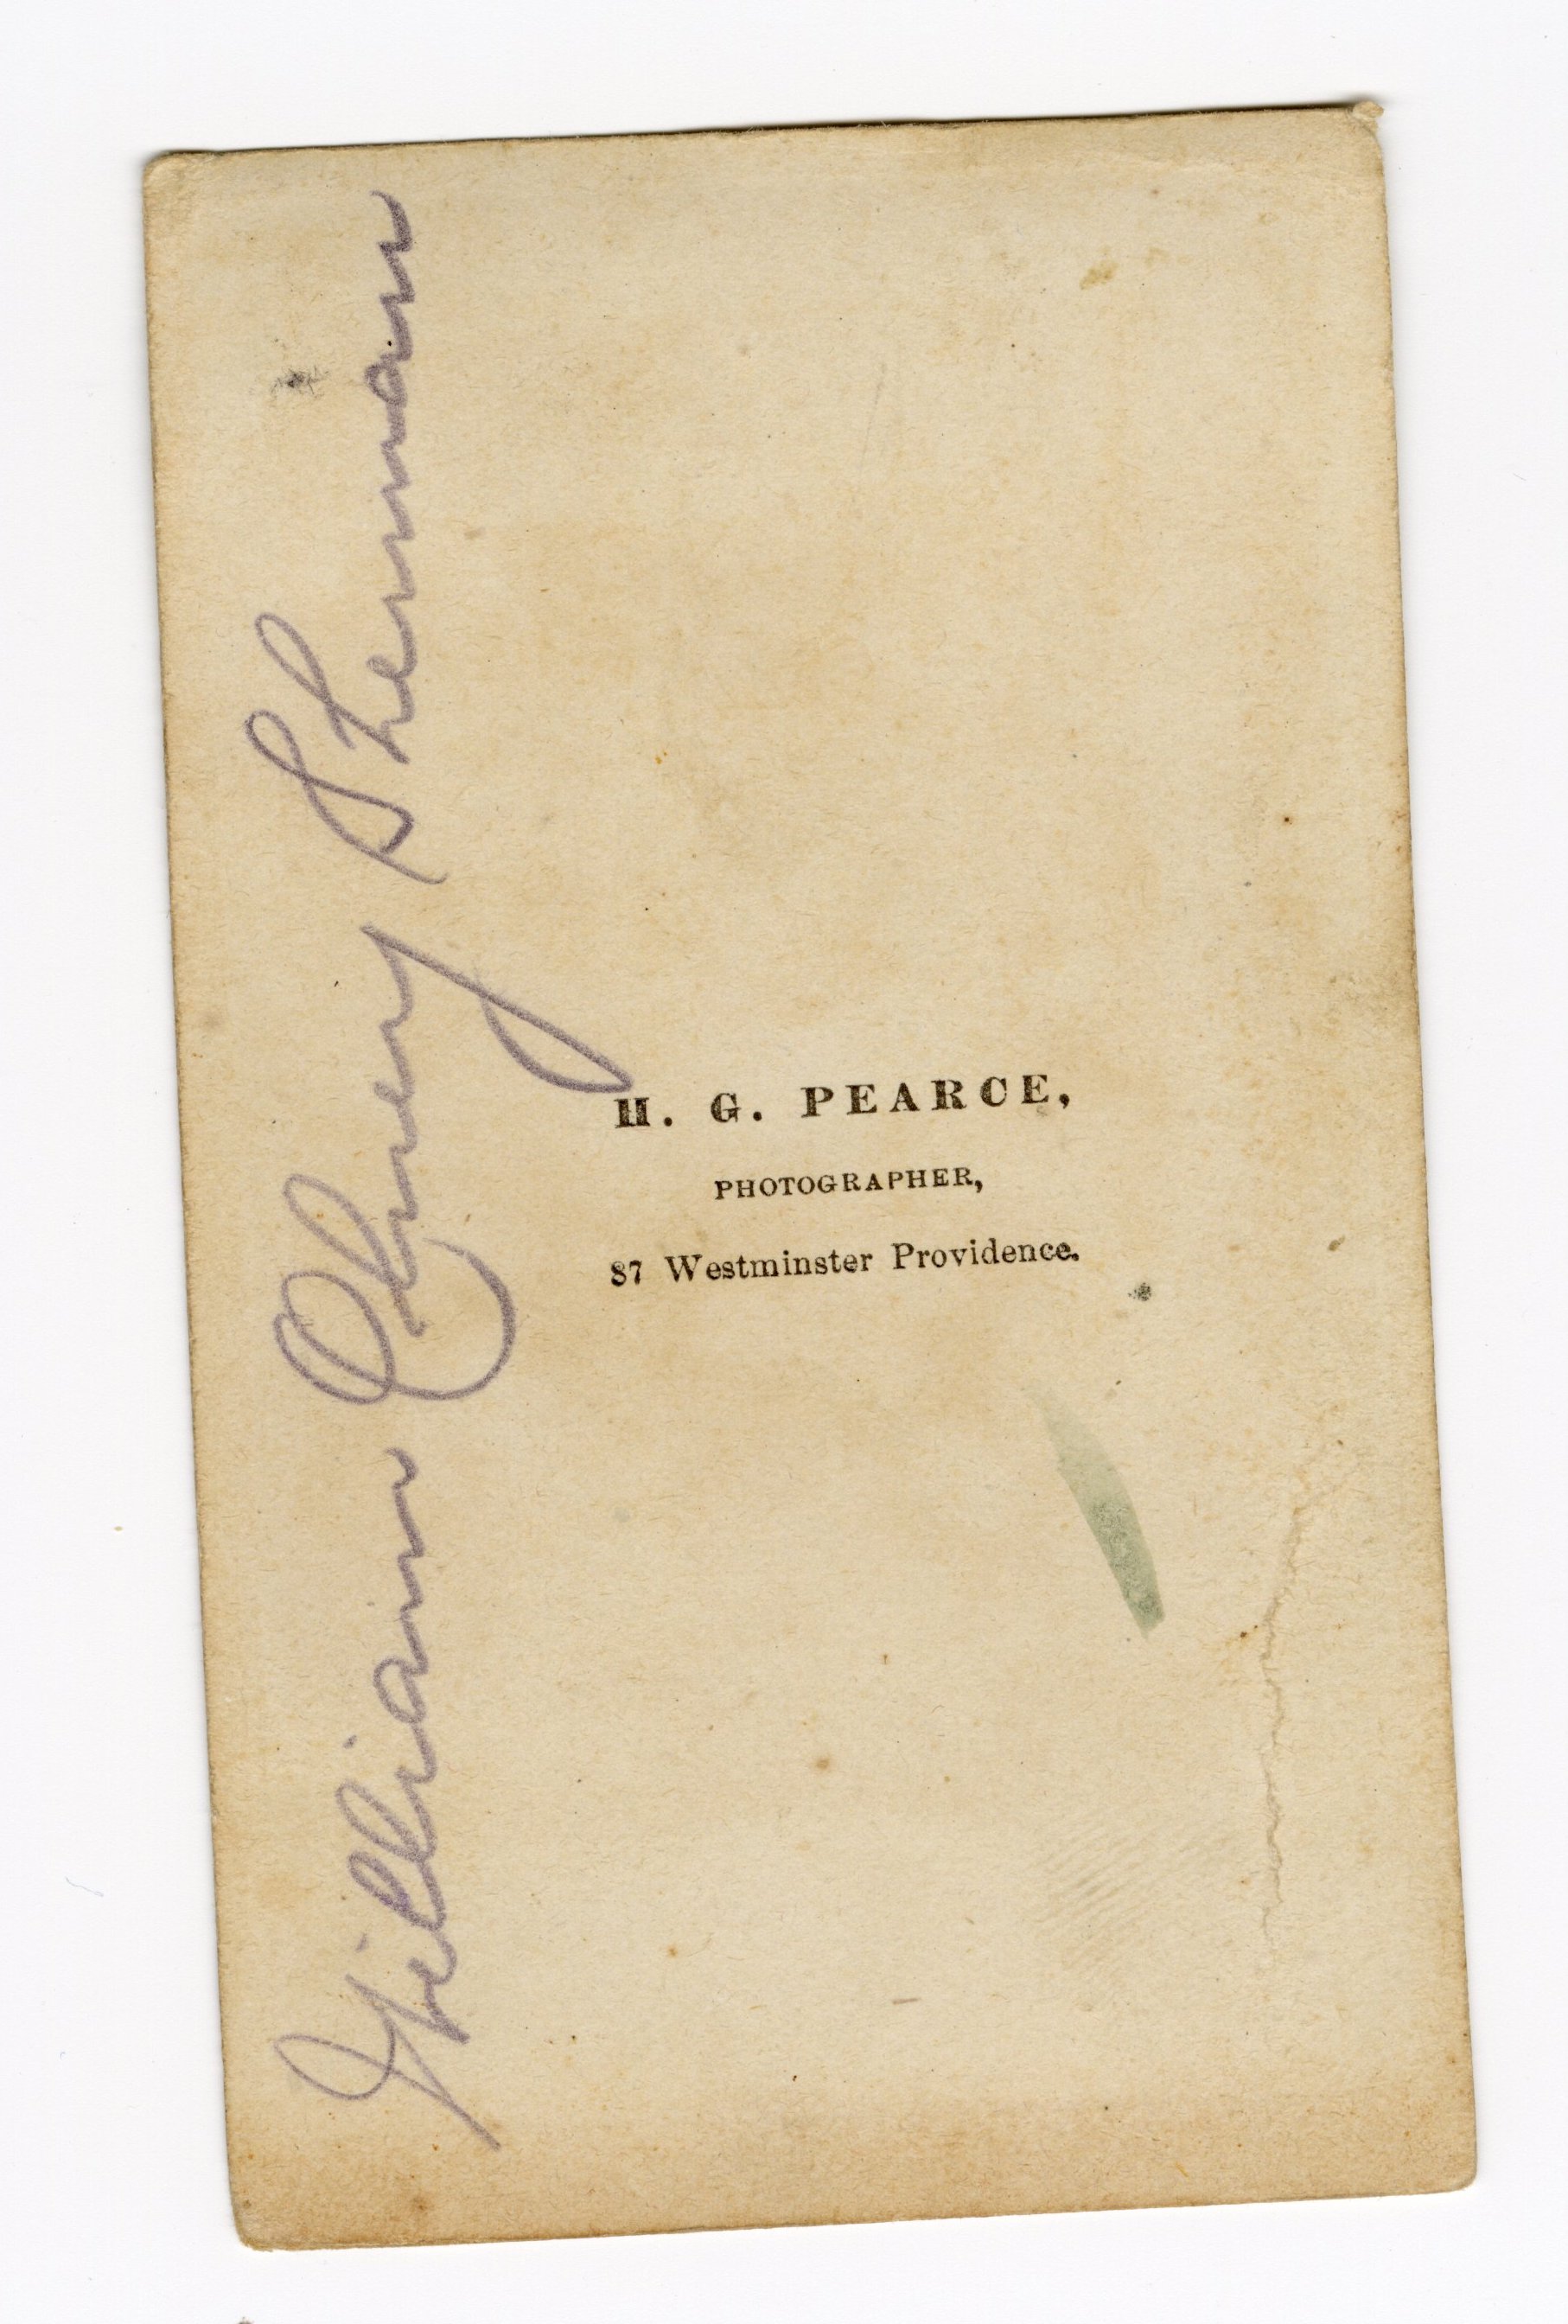 William Olney Sherman
H. G. PEARCE,
PHOTOGRAPHER,
87 Westminster Providence.